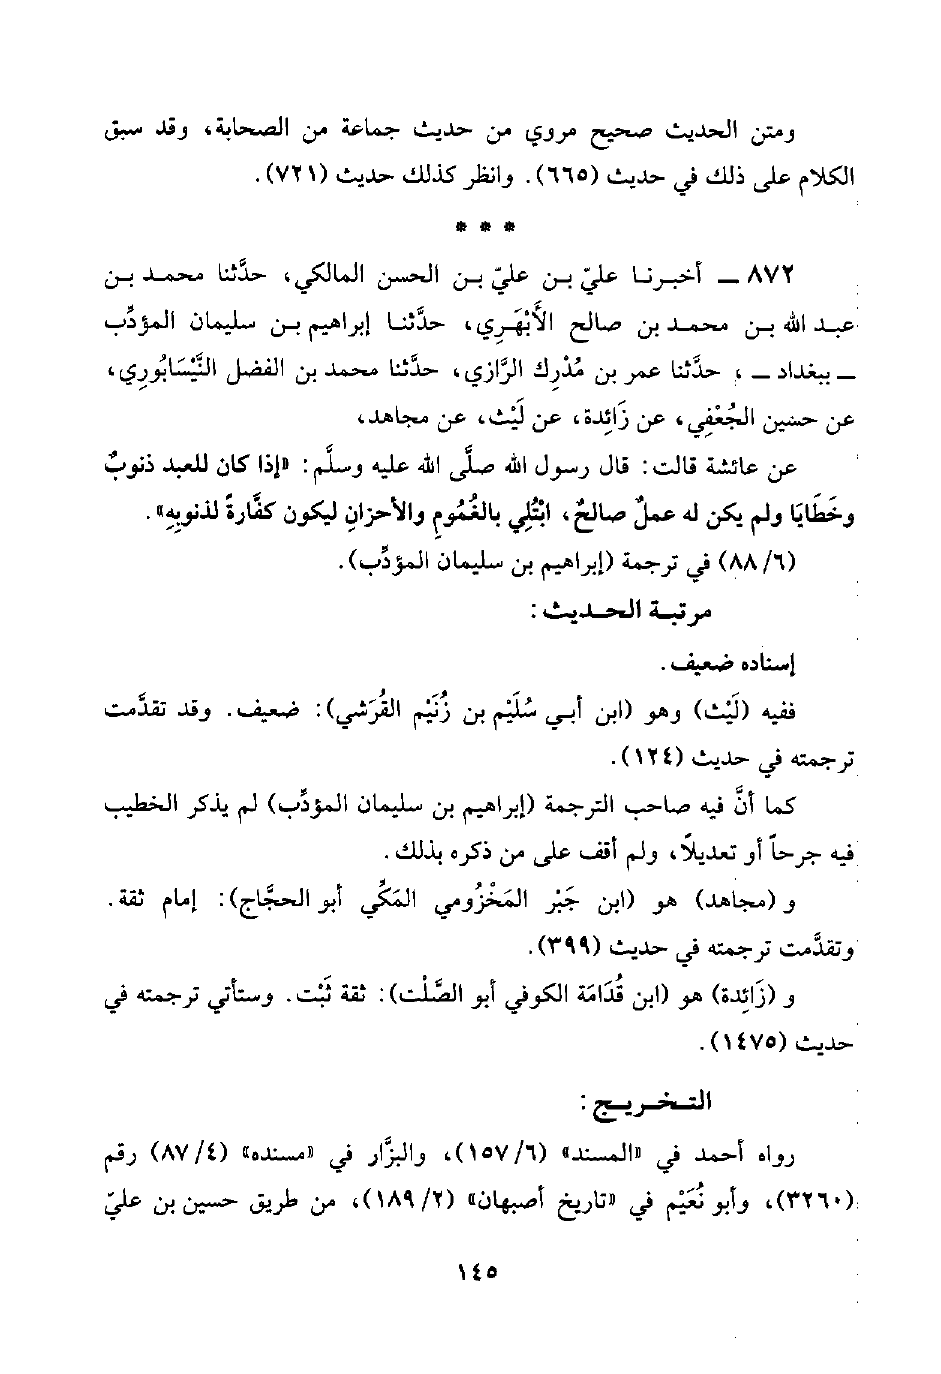 ومتن الحديث صحيح مروي من حديث جماعة من الصحابة، وقد سبق
الكلام على ذلك في حديث (٦٦٥). وانظر كذلك حديث (٧٢١).
* * *
٨٧٢ ــ أخبرنا عليّ بن عليّ بن الحسن المالكي، حدَّثنا محمد بن
عبد الله بن محمد بن صالح الأَبْهَرِي، حدَّثنا إبراهيم بن سليمان المؤدِّب
ــ ببغداد ــ ، حدَّثنا عمر بن مُدْرِك الرَّازي، حدَّثنا محمد بن الفضل النَّيْسَابُوري،
عن حسين الجُعْفِي، عن زَائِدة، عن لَيْث، عن مجاهد،
عن عائشة قالت: قال رسول الله صلَّى الله عليه وسلَّم: «إذا كان للعبد ذنوبٌ
وخَطَايَا ولم يكن له عملٌ صالحٌ، ابْتُلِي بالغُمُومِ والأحزانِ ليكون كفَّارةً لذنوبِهِ».
(٦/ ٨٨) في ترجمة (إبراهيم بن سليمان المؤدِّب).
مرتبة الحديث:
إسناده ضعيف.
ففيه (لَيْث) وهو (ابن أبي سُلَيْم بن زُنَيْم القُرَشي): ضعيف. وقد تقدَّمت
ترجمته في حديث (١٢٤).
كما أنَّ فيه صاحب الترجمة (إبراهيم بن سليمان المؤدِّب) لم يذكر الخطيب
فيه جرحاً أو تعديلاً، ولم أقف على من ذكره بذلك.
و (مجاهد) هو (ابن جَبْر المَخْزُومي المَكِّي أبو الحجَّاج): إمام ثقة.
وتقدَّمت ترجمته في حديث (٣٩٩).
و (زَائِدة) هو (ابن قُدَامَة الكوفي أبو الصَّلْت): ثقة ثَبْت. وستأتي ترجمته في
حديث (١٤٧٥).
التخريج:
رواه أحمد في «المسند» (٦/ ١٥٧)، والبزَّار في «مسنده» (٤/ ٨٧) رقم
(٣٢٦٠)، وأبو نُعَيْم في «تاريخ أصبهان» (٢/ ١٨٩)، من طريق حسين بن عليّ
١٤٥